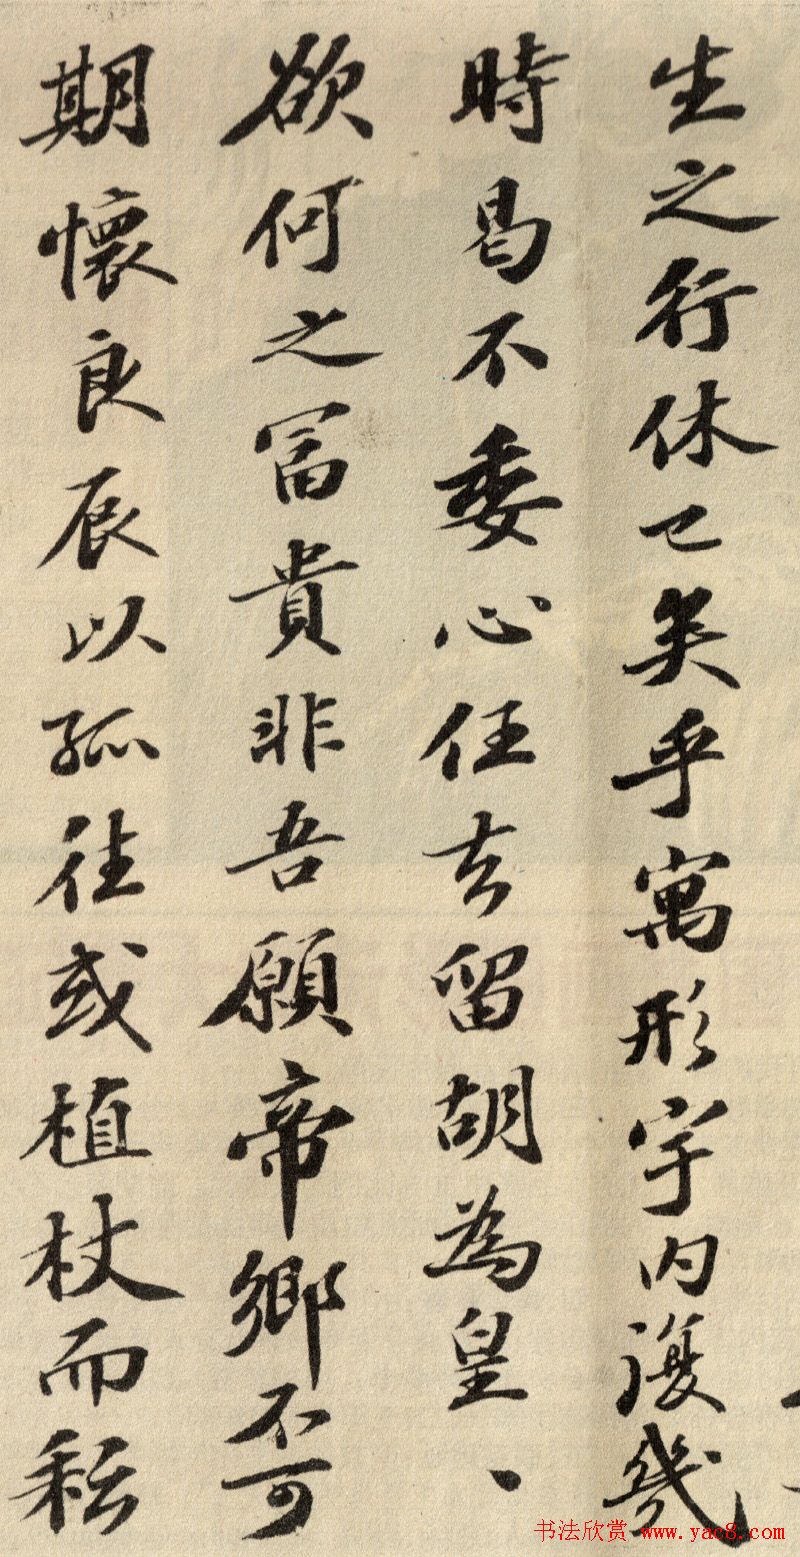 生之行休已矣乎寓形宇内復幾
時曷不委心任去留胡為皇、
欲何之富貴非吾願帝鄉不可
期懷良辰以孤往或植杖而耘
书法欣赏 www.yac8.com